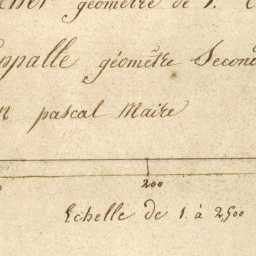 géometre de 1.
ppalle géometre Second
n pascal Maire
200
Echelle de 1. à 2,500